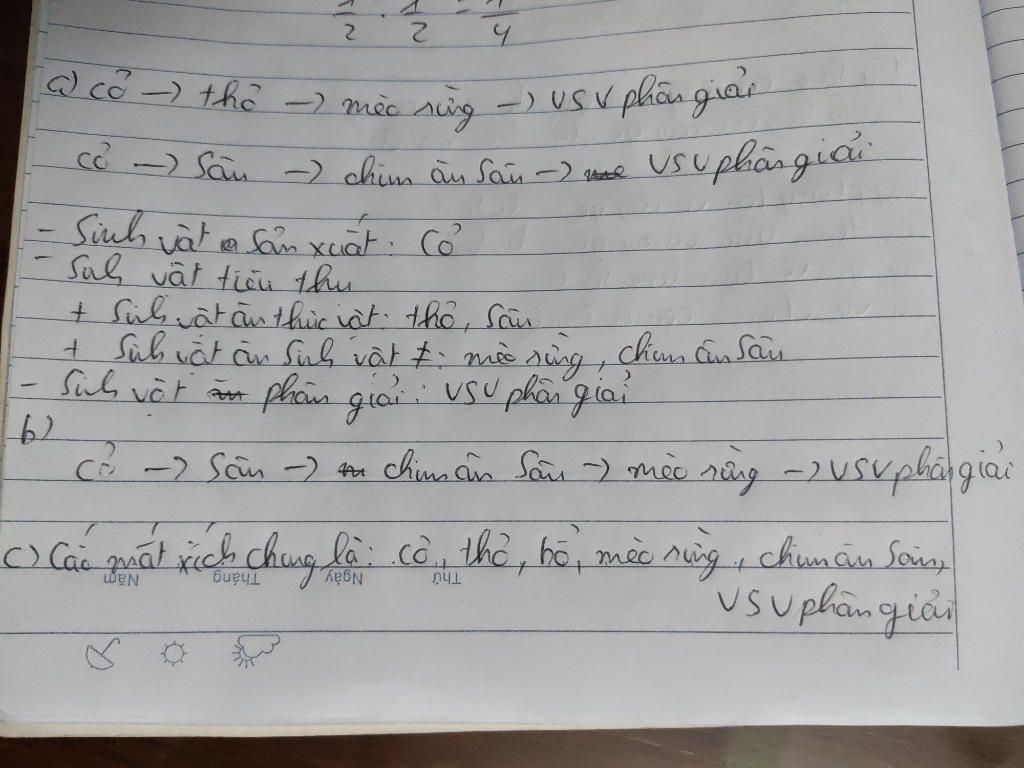 1/2 . 1/2 = 1/4
a) cỏ → thỏ → mèo rừng → VSV phân giải
cỏ → Sâu → chim ăn sâu → VSV phân giải
- Sinh vật sản xuất: Cỏ
- Sinh vật tiêu thụ
+ Sinh vật ăn thực vật: thỏ, sâu
+ Sinh vật ăn sinh vật ≠: mèo rừng, chim ăn sâu
- Sinh vật phân giải: VSV phân giải
b)
Cỏ → Sâu → chim ăn sâu → mèo rừng → VSV phân giải
c) Các mắt xích chung là: cỏ, thỏ, hổ, mèo rừng, chim ăn sâu,
Thứ Ngày Tháng Năm
VSV phân giải